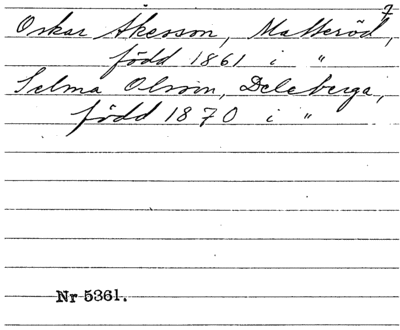 7
Oskar Åkesson, Matteröd,
född 1861 i "
Selma Olsson, Deleberga,
född 1870 i "
Nr 5361.